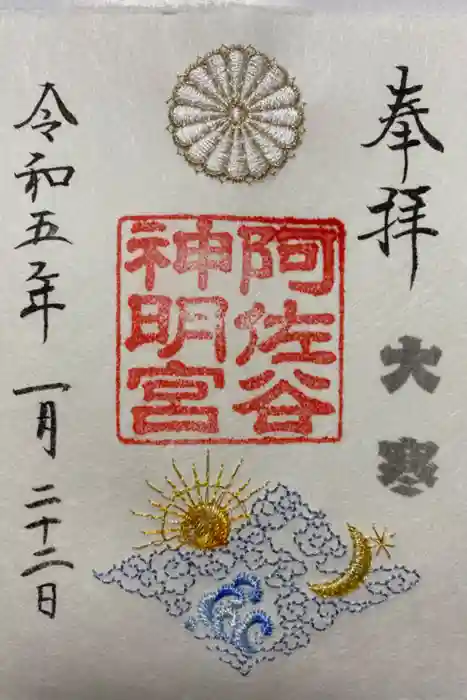 奉拝
大寒
阿佐谷
神明宮
令和五年 一月 二十二日